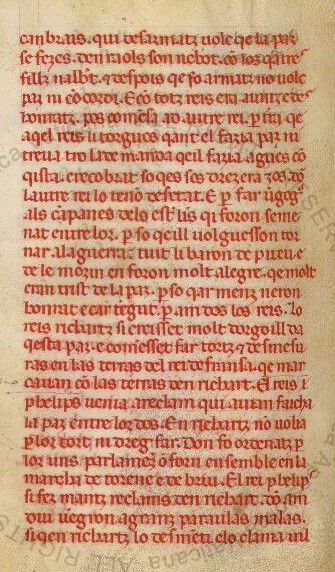 canbrais. qui desarmatz uole qe la paz
se fezes. den raols son nebot. cō los qatre
fillz nalbt. ⁊ despois qe fo armatz no uole
paz ni cōcordi. E cō totz reis era aunitz e des
honratz. pos comēsa ab autre rei. ꝑ fin qe
aqel reis li torgues qant el fazia paz ni
treua tro la demanda qeil fazia agues cō
qista. e recobrat so qes ses drez era zos. do
lautre rei lo tenō deserat. E ꝑ far
als cāpanes dels
nat entre lor. ꝑ so qe ill uolguesson tor
nar a la guerra. tuit li baron de piteu e
de lemozin en foron molt alegre. qe molt
eran trist de la paz. ꝑ so qar menz neron
honrat e car tēgut. ꝑ am dos los reis. Lo
reis richartz si creisset molt dorgoill da
qesta paz. e comēset far tortz ⁊ desmesu
ras en las terras del rei de fransa. qe mar
cauan cō las terras den richart. El reis ꝑ
phelips uenia a reclam qui auian faicha
la paz entre lor dos. En richartz nō uolia
ꝑ lor tort ni dreg far. Don fo ordenatz ꝑ
lor uns parlamēz. ō foron ensemble en la
marcha de torene e de briu. El rei ꝑhelips
si fez mantz reclams den richart. dō am
dui uēgron a granz paraulas malas.
si qen richartz lo desmēti. e lo clama uil